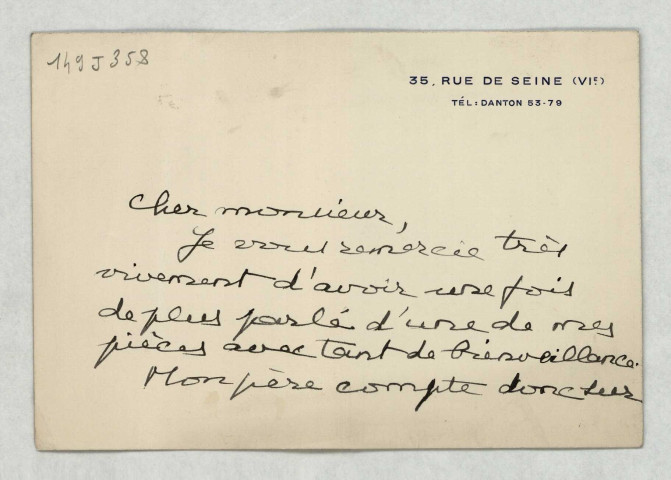 149 J 358
35, RUE DE SEINE (VIE)
TÉL : DANTON 53-79
Cher monsieur,
Je vous remercie très
vivement d'avoir une fois
de plus parlé d'une de mes
pièces avec tant de bienveillance.
Mon père compte donc sur